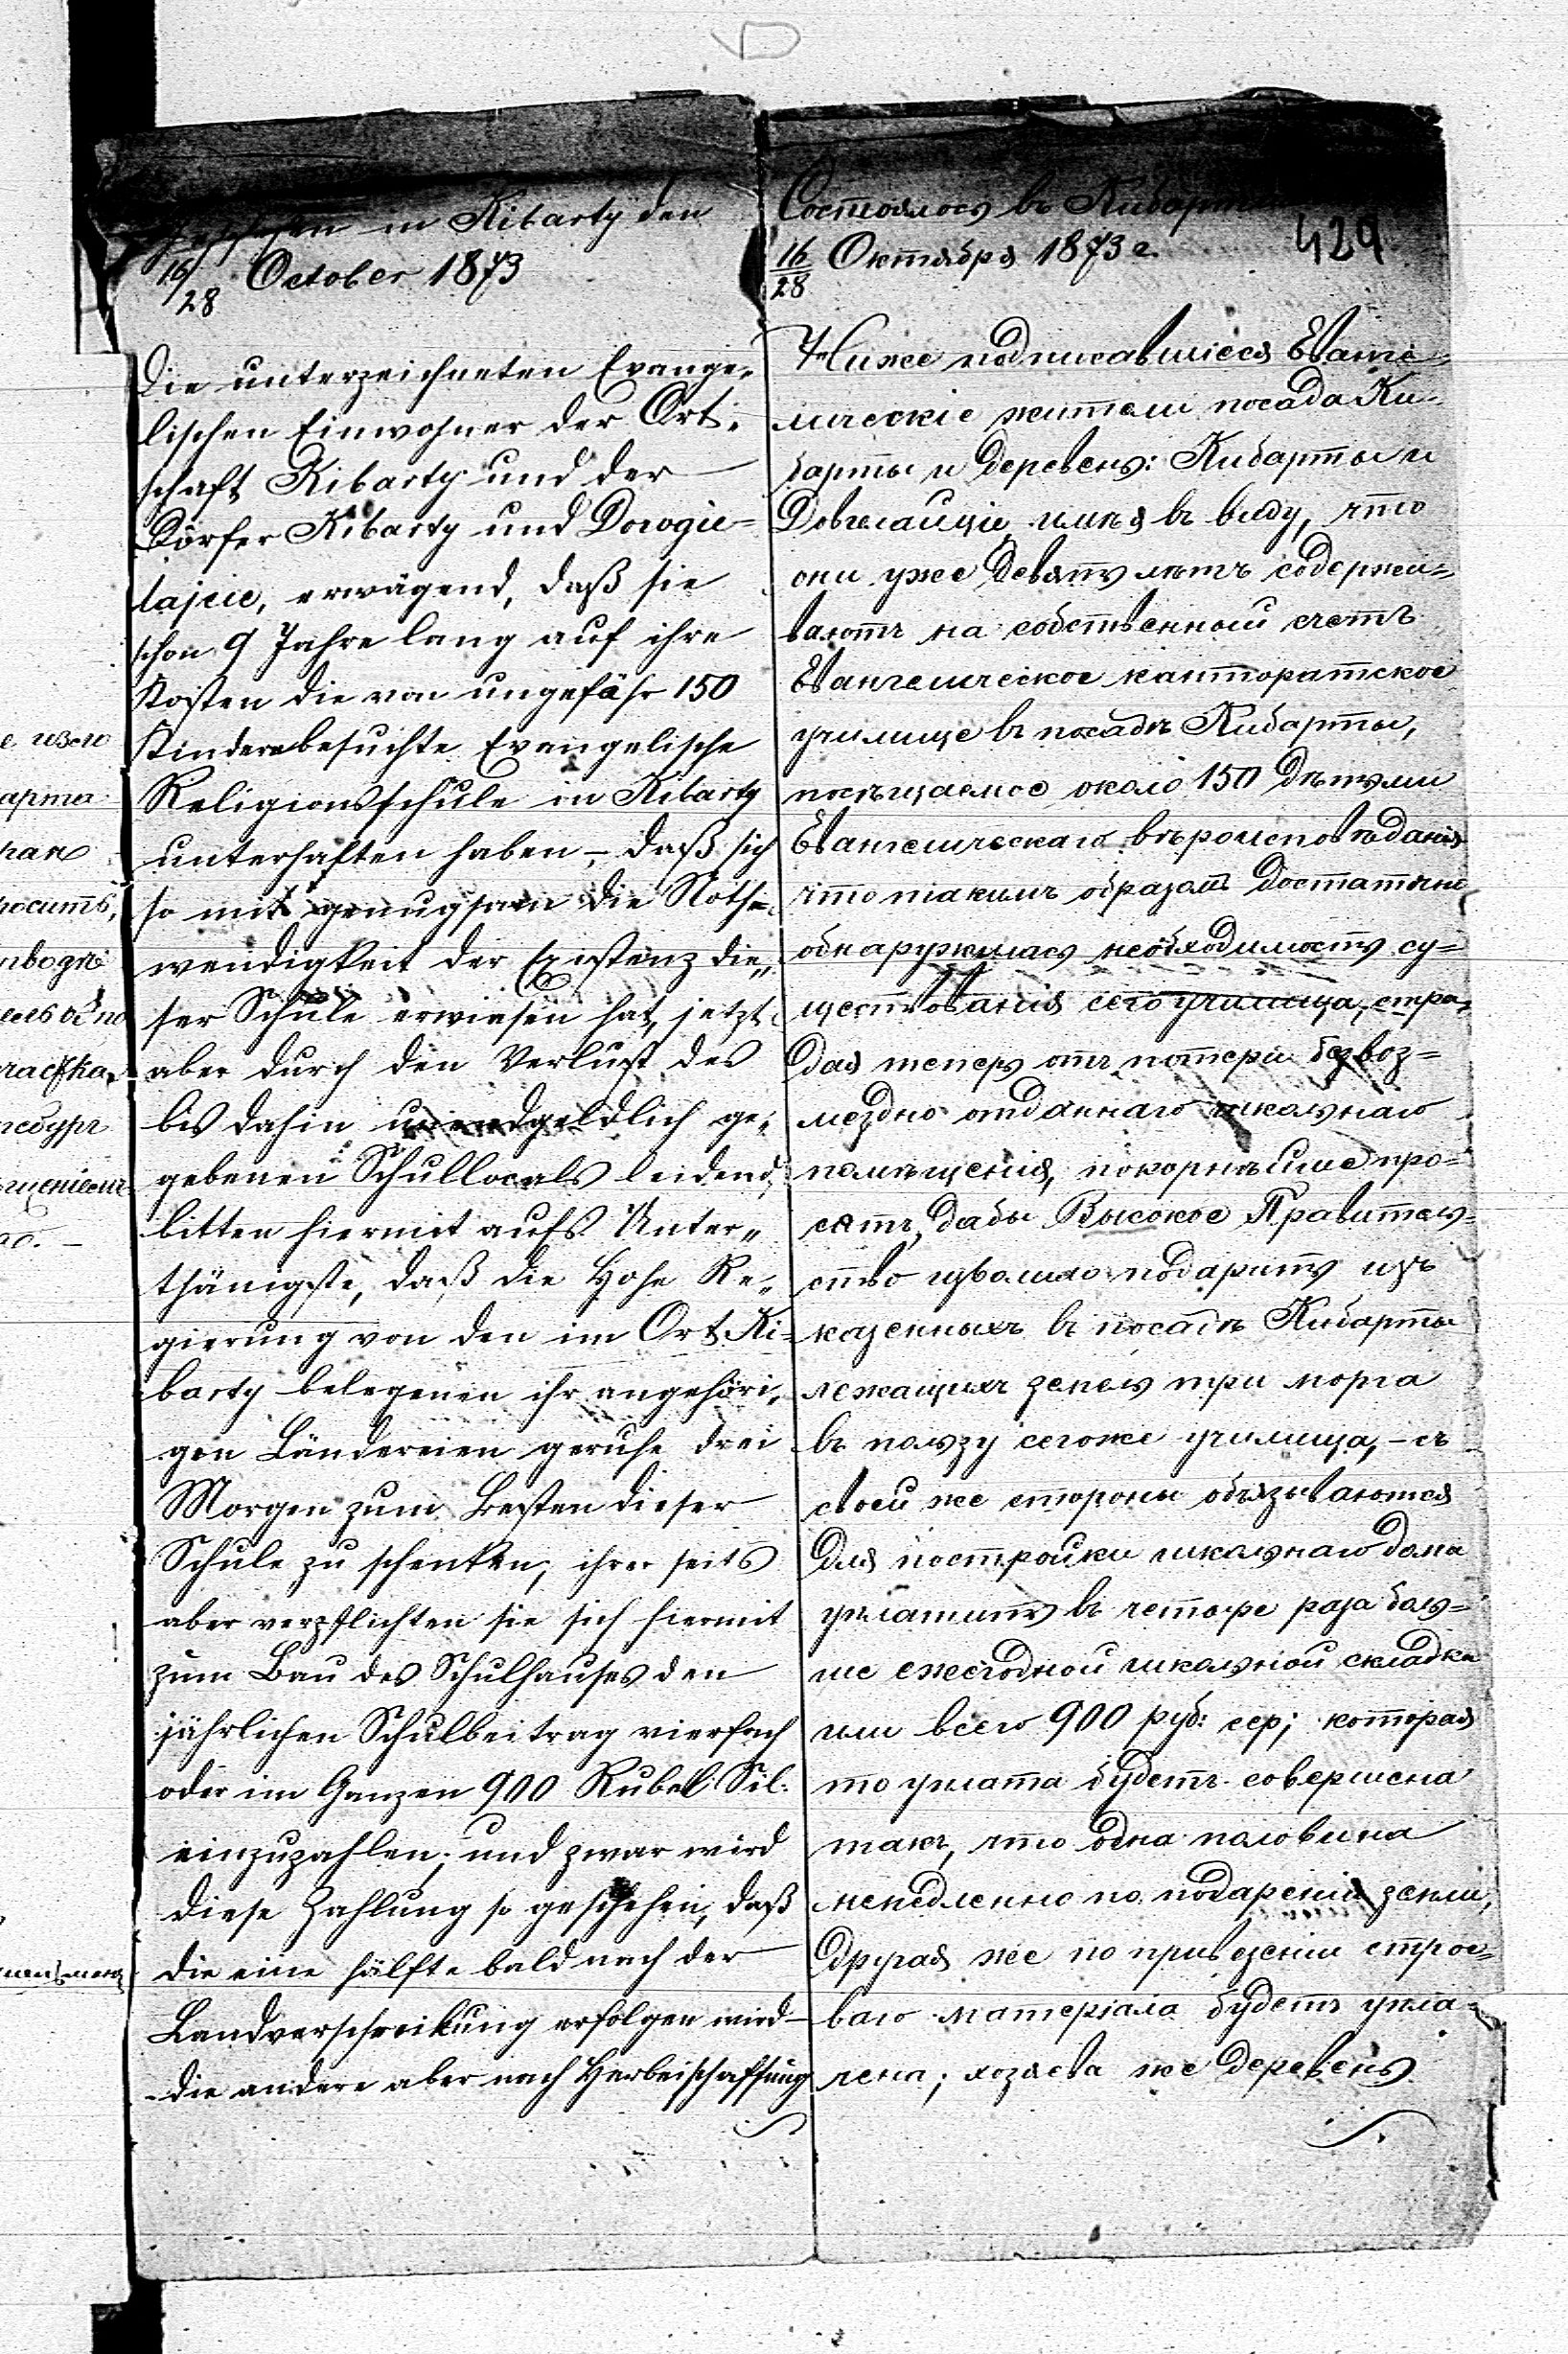 429
Geschehen in Kibarty den
16/28 October 1873
Die unterzeichneten Evange„
lischen Einwohner der Ort„
schaft Kibarty und der
Dörfer Kibarty und Dowgie=
lajcie, erwägend, daß sie
schon 9 Jahre lang auf ihre
Kosten die von ungefähr 150
Kindern besuchte Evangelische
Religionsschule in Kibarty
unterhalten haben, – daß sich
so mit genugsam die Noth„
wendigkeit der Existenz die„
ser Schule erwiesen hat, jetzt
aber durch den Verlust des
bis dahin unendgeldlich ge„
gebenen Schullocals leidend,
bitten hiermit aufs Unter„
thänigste, daß die Hohe Re„
gierung von den im Ort Ki=
barty belegenen ihr angehöri„
gen Ländereien geruhe drei
Morgen zum Besten dieser
Schule zu schenken, ihrer seits
aber verpflichten sie sich hiermit
zum Bau des Schulhauses den
jährlichen Schulbeitrag vierfach
oder im Ganzen 900 Rubel Sil:
einzuzahlen; und zwar wird
diese Zahlung so geschehen, daß
die eine Hälfte bald nach der
Landverschreibung erfolgen wird
die andere aber nach Herbeischaffung
Состоялось въ Кибартах
16/28 Октября 1873 г.
Ниже подписавшіеся Еванге-
лическіе жители посада Ки-
барты и деревень: Кибарты и
Довгелайцie, имѣя въ виду, что
они уже девять лѣтъ содержи=
ваютъ на собственный счетъ
Евангелическое канторатское
училище въ посадѣ Кибарты,
посѣщаемое около 150 дѣтьми
Евангелическаго вѣроисповѣданія
что такимъ образомъ достаточно
обнаружилась необходимость су=
ществованія сего училища, стра„
дая теперь отъ потери безвоз=
мездно отданнаго школьнаго
помѣщенія, покорнѣйше про=
сятъ, дабы Высокое Правитель=
ство изволило подарить изъ
казенныхъ въ посадѣ Кибарты
лежащихъ земель три морга
въ пользу сегоже училища, – съ
своей же стороны обязываются
для постройки школьнаго дома
уплатить въ четыре раза боль=
ше ежегодной школьной складки
или всего 900 руб: сер; которая
то уплата будетъ совершена
такъ, что одна половина
немедленно по подареніи земли,
другая же по привезеніи строе=
ваго матеріала будетъ упла=
чена; хозяева же деревень